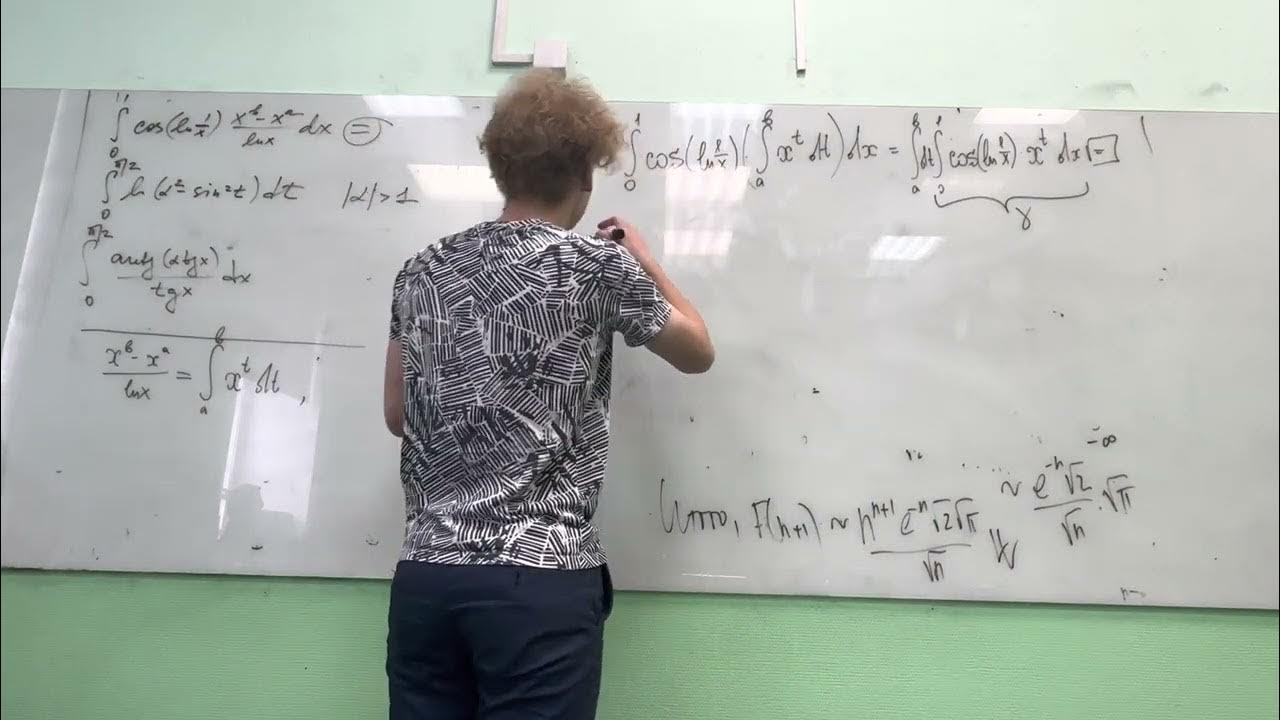 ∫₀¹ cos(ln 1/x) (x^b - x^a)/(ln x) dx =
∫₀^{π/2} ln(α² - sin²t) dt |α|>1
∫₀^{π/2} arctg(αtgx)/(tgx) dx
(x^b - x^a)/(ln x) = ∫ₐ^b x^t dt,
∫₀¹ cos(ln 1/x)·(∫ₐ^b x^t dt) dx = ∫ₐ^b dt ∫₀¹ cos(ln 1/x) x^t dx =
γ
-∞
Итого, Γ(n+1) ~ (n^{n+1} e^{-n} √2√π)/√n ~ (e^{-n}√2)/√n · √π